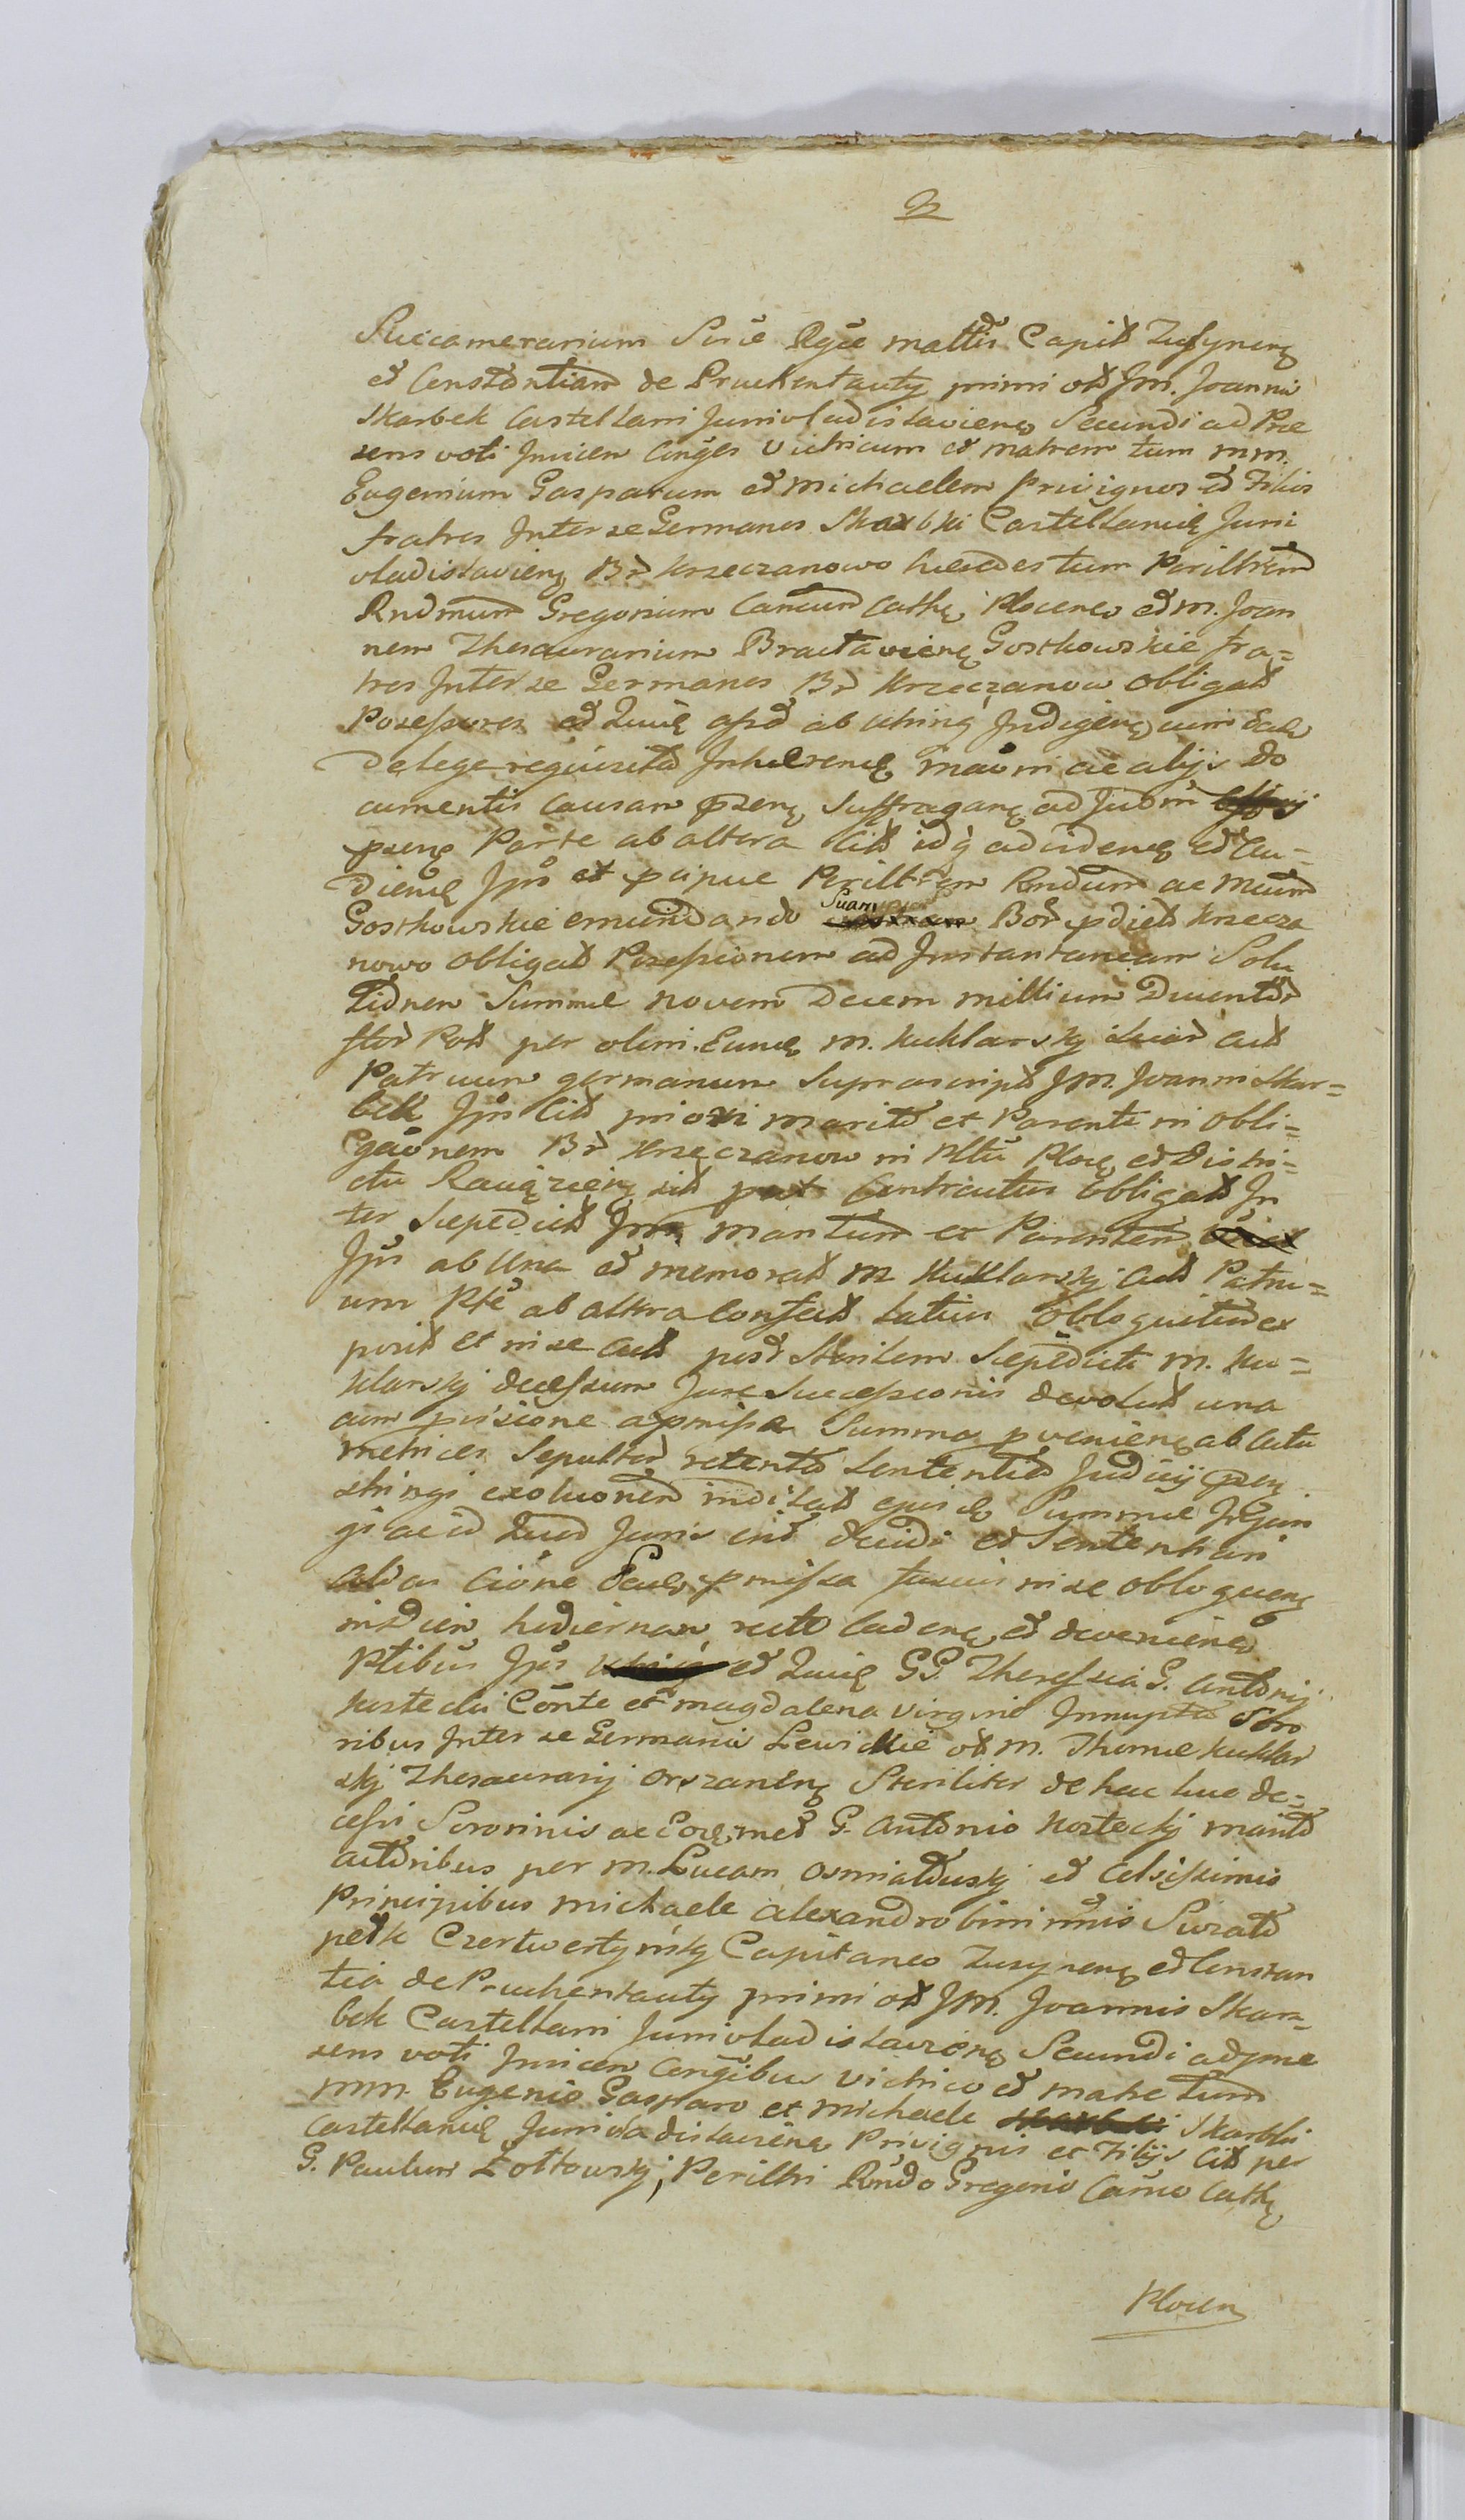 Succamerarium Sacrae Rgae Mattis Capit Zusynen
et Constantiam de Pruchentauty primi ott Jm. Joannis
Skarbek Castellani Junivladislavien Secundi ad Prae
sens voti Invicem Conges Vitricum et matrem tum mm.
Eugenium Gasparum et Michaelem Privignos et Filios
fratres Inter se Germanos Skarbki Castellanid Juni
vladislavien Br Krzeczanowo haeredes tum Perillrem
Rndmum Gregorium Canoum Cathe Plocen et M. Joan
nem Thesaurarium Bractavien Gostkowskie fra=
tres Inter se Germanos Br Krzeczanow obligatt
Possessores et Quid ab utrinq Indigen cum
De lege requisita Inhaeren ac alijs do
cumentis Causam psen Suffragan ad Judm
psen Parte ab altera Citt idq ad viden et au=
dien Jpso et pcipue Perillrem Rndum ac Mcum
Gostkowskie emundando Suam Bor pdictt Krzecza
nowo obligatt Possessionem ad Instantaneam Solu
tionem Summae novem Decem millium Ducentor
flor Poll per olim M. Kuklarsky
Patruum germanum Suprascript Jm. Joanni Skar=
bek Jpsi Citt priori marito et Parenti in obli=
gaonem Br Krzeczanow in Pltu Ploc et Distri=
ctu Raciązien sitt Contractus obligatt In
ter Saepedictt Jm maritum et Parentem
Jpsi ab una et memoratt M Kuklarskj Patru=
um Pte ab altera Confectt Latius obloquitur ex
et in se post Sterilem Saepedicti M. Ku=
klarskj decessum Jure Successionis devolutt una
cum pvisione a pmissa Summa pvenien ab actu
metrices Sepultur retento Sententia Judicij psen
stringi exoluonem Summae Injun
gi ac id Quod Juris erit decidi et Sententiari
pmissa fusius in se obloquen
in diem hodiernam recte Caden et devenien
Ptibus Jpsi et Quid GG. Theressia G. Antonij
Kostecki Conte et Magdalena virgine Innupta Soro
ribus Inter se Germanis Lewickie ott M. Thomae Kuklar
skj Thesaurarij Orszanen Steriliter de hac luce de=
cessi Sororinis ac G. Antonio Kosteckj marito
actoribus per M. Lucam Osmiałowskj et Celsissimis
Principibus Michaele Alexandro bini nominis Swiato
pełk Czertwertyńskj Capitaneo Zusynen et Constan
tia de Pruchentauty primi ott Jm. Joannis Skar=
bek Castellani Junivladislavien Secundi ad prae
sens voti Invicem Congibus Vitrico et matre tum
mm. Eugenio Gasparo et Michaele Skarbki
Castellanid Junivladislavien Privignis et Filijs Citt per
G. Paulum Żołtowskj, Perillri Rndo Gregorio Canco Cathe
Plocen